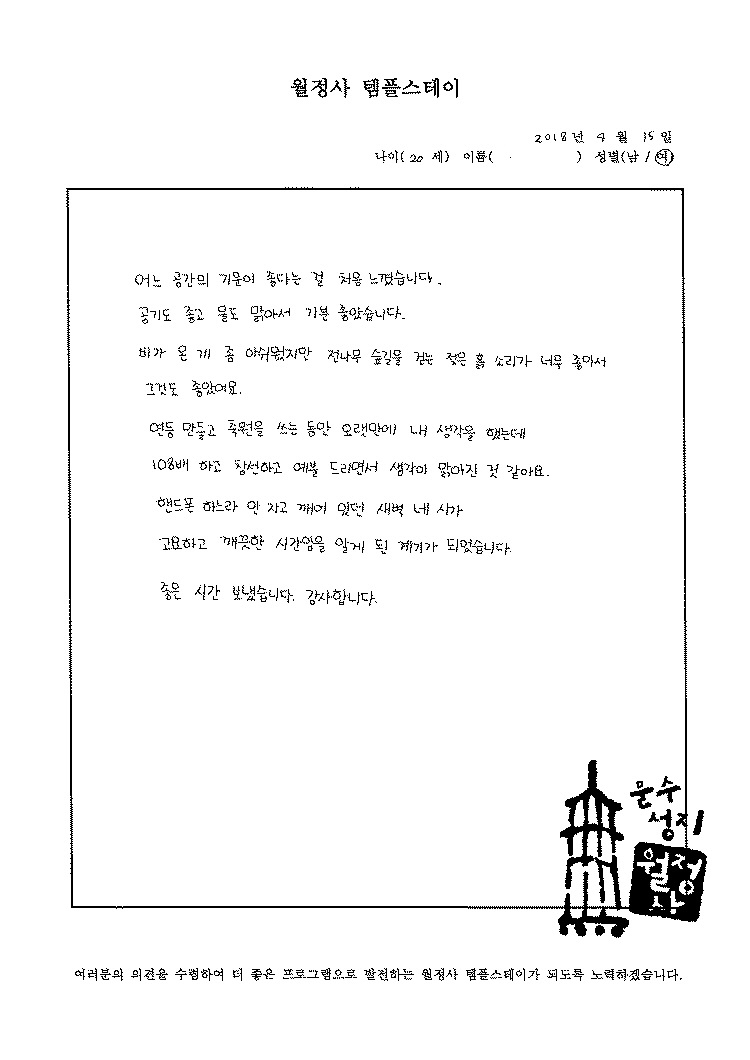 월정사 템플스테이
2018년 4월 15일
나이(20세) 이름( ) 성별(남/여)
어느 공간의 기운이 좋다는 걸 처음 느꼈습니다.
공기도 좋고 물도 맑아서 기분 좋았습니다.
비가 온 게 좀 아쉬웠지만 전나무 숲길을 걷는 젖은 흙 소리가 너무 좋아서
그것도 좋았어요.
연등 만들고 축원을 쓰는 동안 오랫만에 내 생각을 했는데
108배 하고 참선하고 예불 드리면서 생각이 맑아진 것 같아요.
핸드폰 하느라 안 자고 깨어 있던 새벽 네 시가
고요하고 깨끗한 시간임을 알게 된 계기가 되었습니다.
좋은 시간 보냈습니다. 감사합니다.
문수
성지
월정
사
여러분의 의견을 수렴하여 더 좋은 프로그램으로 발전하는 월정사 템플스테이가 되도록 노력하겠습니다.